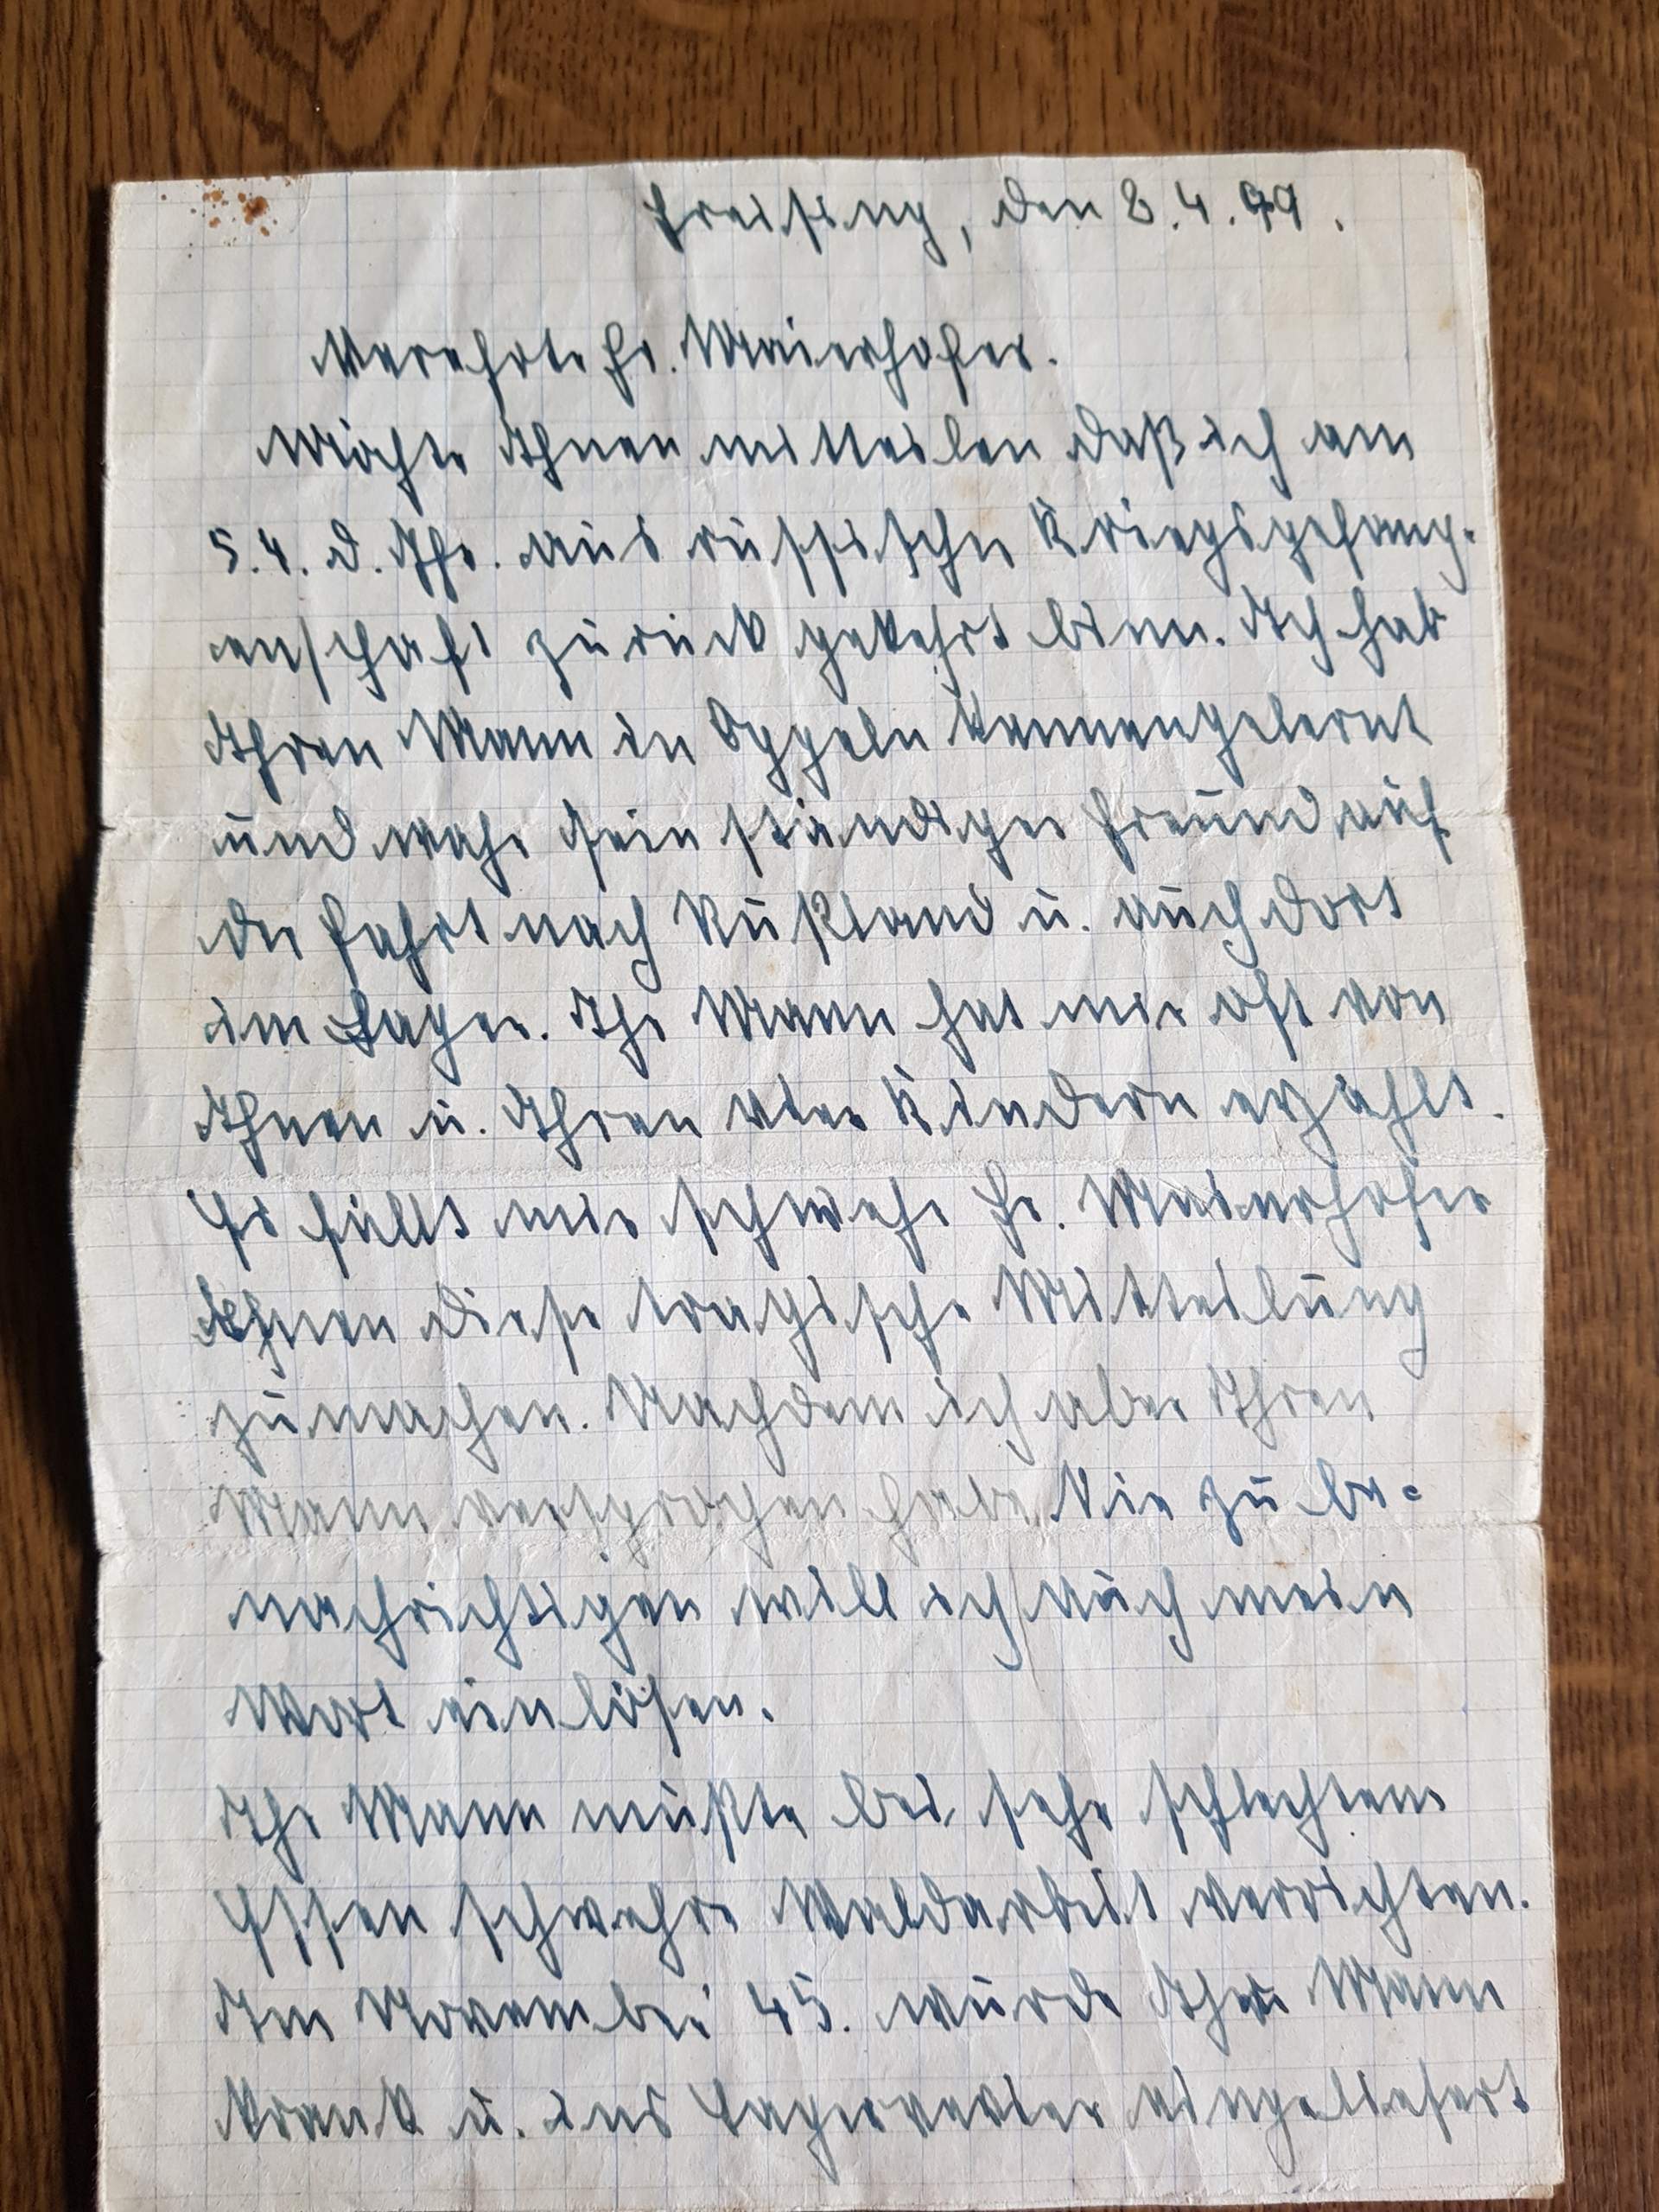 Freising, den 8.4.49.
Verehrte Fr. Maierhofer.
Möchte Ihnen mitteilen daß ich am
5.4. d. Jhr. aus russischer Kriegsgefang-
enschaft zurück gekehrt binn. Ich hab
Ihren Mann in Oppeln kennengelernt
und wahr sein ständiger Freund auf
der Fahrt nach Rußland u. auch dort
im Lager. Ihr Mann hat mir oft von
Ihnen u. Ihren vier Kindern erzählt.
Es fällt mir schwehr Fr. Maierhofer
Ihnen diese tragische Mitteilung
zumachen. Nachdem ich aber Ihren
Mann versprochen habe Sie zu be-
nachrichtigen will ich auch mein
Wort einlösen.
Ihr Mann mußte bei sehr schlechtem
Essen schwehre Waldarbeit verrichten.
Im November 45. wurde Ihr Mann
krank u. ins Lagerrevier eingeliefert